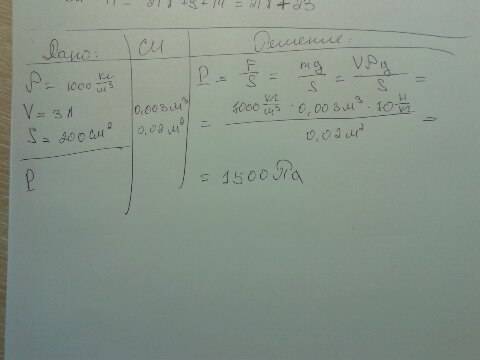 = 218+5+
= 218+23
Дано: СИ Решение:
ρ = 1000 кг/м³
V = 3 л 0,003 м³
S = 200 см² 0,02 м²
P
P = F/S = mg/S = Vρg/S =
= 1000 кг/м³ · 0,003 м³ · 10 Н/кг / 0,02 м² =
= 1500 Па